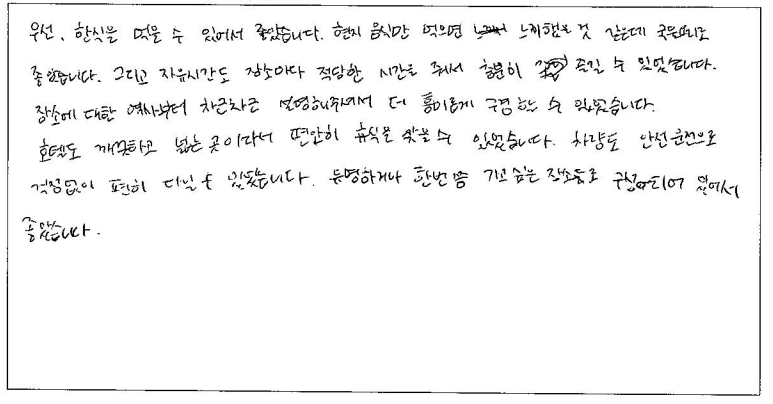 우선, 한식을 먹을 수 있어서 좋았습니다. 현지 음식만 먹으면 느끼했을 것 같은데 국물요리도
좋았습니다. 그리고 자유시간도 장소마다 적당한 시간을 줘서 충분히 즐길 수 있었습니다.
장소에 대한 역사부터 차근차근 설명해주셔서 더 흥미롭게 구경할 수 있었습니다.
호텔도 깨끗하고 넓은 곳이라서 편안히 휴식을 맞볼 수 있었습니다. 차량도 안전운전으로
걱정없이 편히 다닐 수 있었습니다. 유명하거나 한번쯤 가고 싶은 장소들로 구성되어 있어서
좋았습니다.